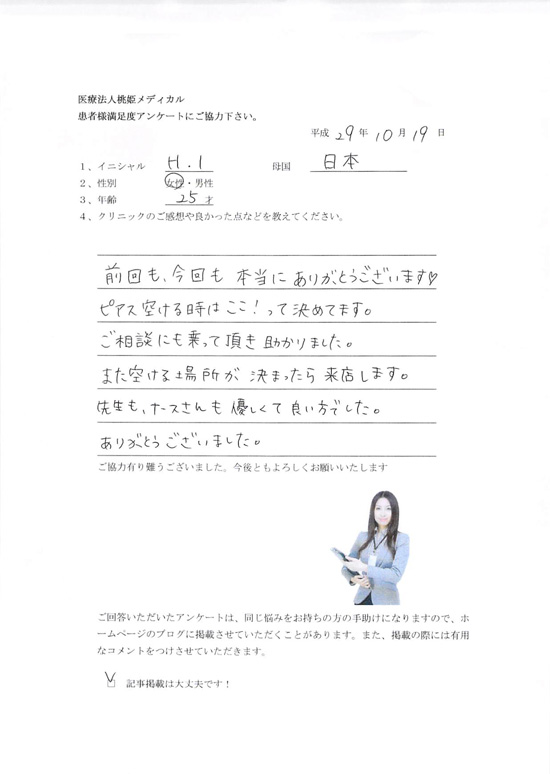 医療法人桃姫メディカル
患者様満足度アンケートにご協力下さい。
平成 29 年 10 月 19 日
1、イニシャル H.I 母国 日本
2、性別 女性・男性
3、年齢 25 才
4、クリニックのご感想や良かった点などを教えてください。
前回も、今回も 本当に ありがとうございます♡
ピアス空ける時は ここ!って決めてます。
ご相談にも乗って頂き 助かりました。
また空ける場所が 決まったら 来店します。
先生も、ナースさんも 優しくて 良い方でした。
ありがとうございました。
ご協力有り難うございました。今後ともよろしくお願いいたします
ご回答いただいたアンケートは、同じ悩みをお持ちの方の手助けになりますので、ホ
ームページのブログに掲載させていただくことがあります。また、掲載の際には有用
なコメントをつけさせていただきます。
☑ 記事掲載は大丈夫です!